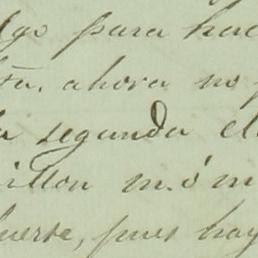 lgo para hac
ta. ahora no
la segunda el
illon m.ó m
uerte, pues hay